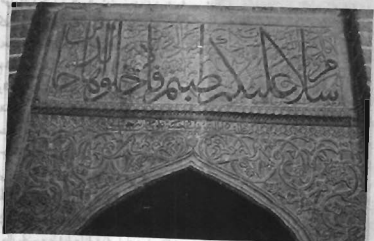 سلام علیکم طبتم فادخلوها خالدین